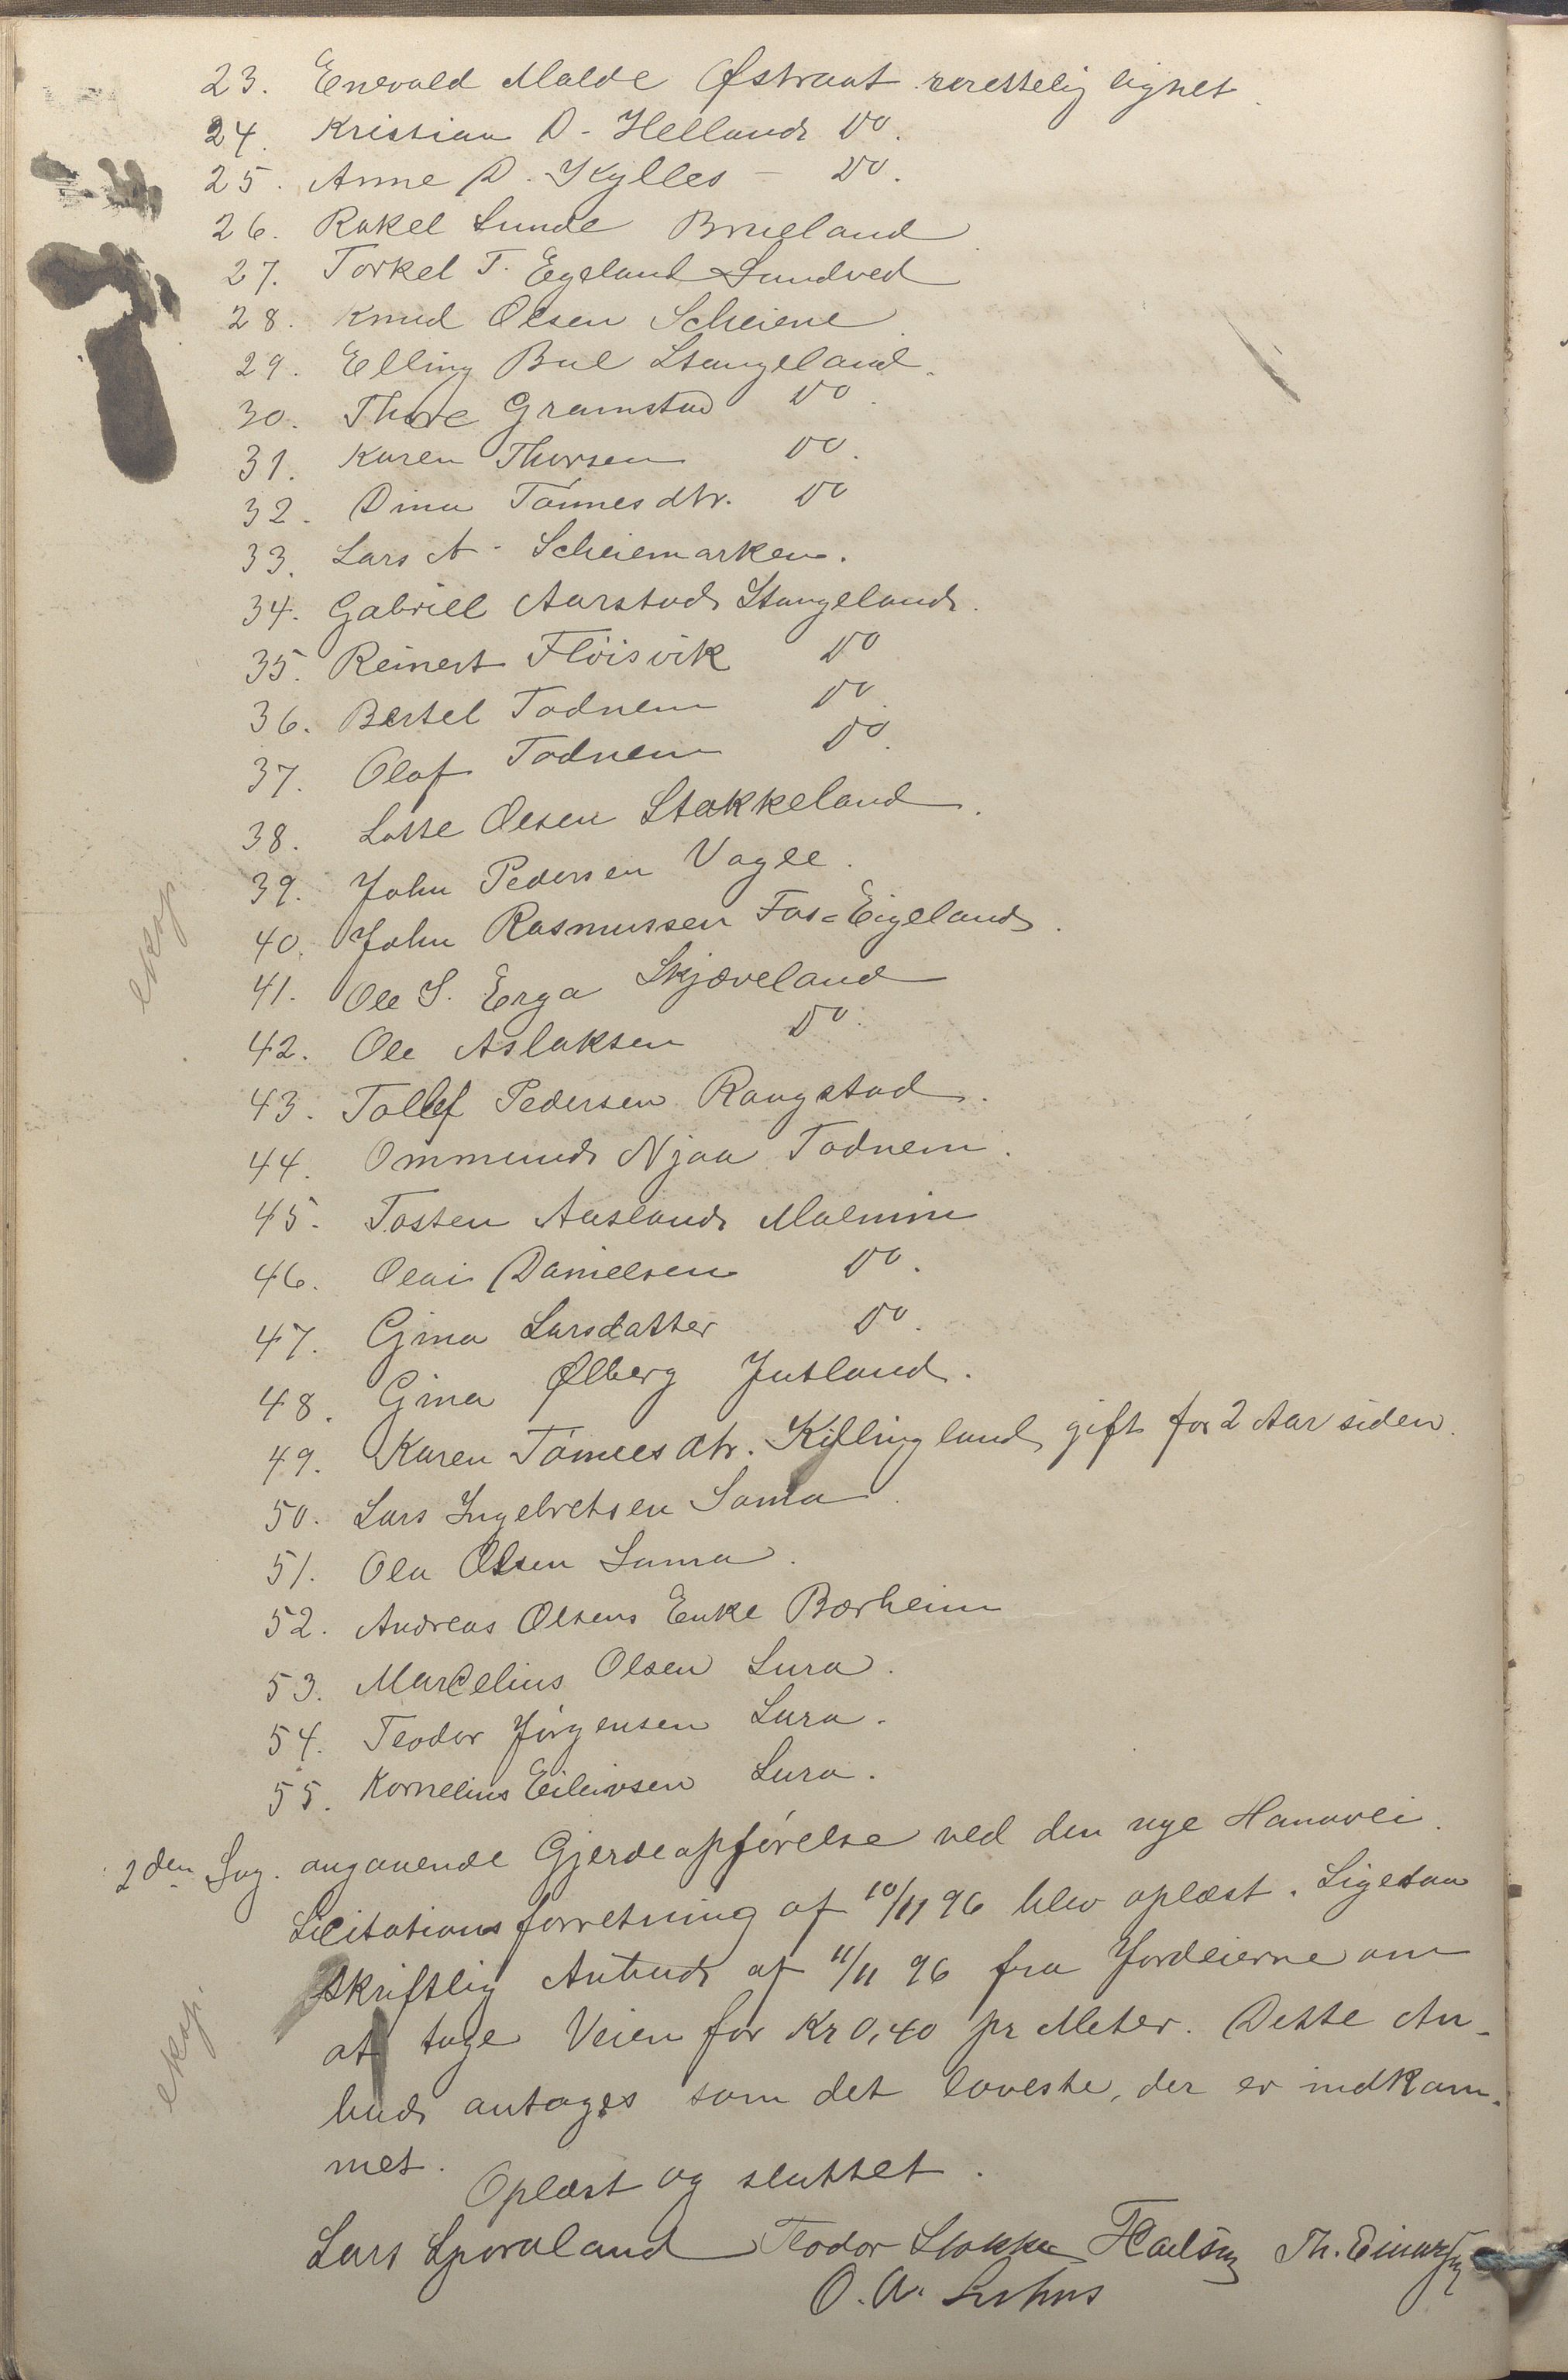 23. Enevald Malde Østraat urettelig lignet.
24. Kristian D. Helland Do.
25. Anne D. Kylles - Do.
26. Rakel Lunde Brueland
27. Torkel T. Egeland Sundved
28. Knud Olsen Scheiene
29. Elling Bul Stangeland.
30. Thore Gramstad Do.
31. Karen Thorsen Do.
32. Dina Tønnesdtr. Do
33. Lars A. Scheiemarken.
34. Gabriel Aarstad Stangeland.
35. Reinert Fløisvik Do
36. Bertel Todnem Do.
37. Olaf Todnem Do.
38. Lotte Olsen Stokkeland.
39. John Pedersen Vagle.
40. John Rasmussen Fos=Eigeland.
41. Ole S. Erga Skjæveland
42. Ole Aslaksen Do.
43. Tollef Pedersen Raugstad.
44. Ommund Njaa Todnem.
45. Tosten Aasland Malmin
46. Olai Danielsen Do.
47. Gina Larsdatter Do.
48. Gina Ølberg Jutland.
49. Karen Tønnesdtr. Killingland, gift for 2 Aar siden.
50. Lars Ingebretsen Soma.
51. Ola Olsen Soma.
52. Andreas Olsens Enke Bærheim
53. Marcelius Olsen Lura.
54. Teodor Jørgensen Lura.
55. Kornelius Eileivsen Lura.
eksp.
2den Sag. angaaende Gjerdeopførelse ved den nye Hanavei.
Licitationsforretning af 10/11 96 blev oplæst. Ligesaa
skriftlig Anbud af 11/11 96 fra Jordeierne om
at tage Veien for Kr 0,40 pr Meter. Dette An-
bud antages som det laveste, der er indkom-
met.
eksp.
Oplæst og sluttet.
Lars Sporaland Teodor Stokke Th. Einarsen